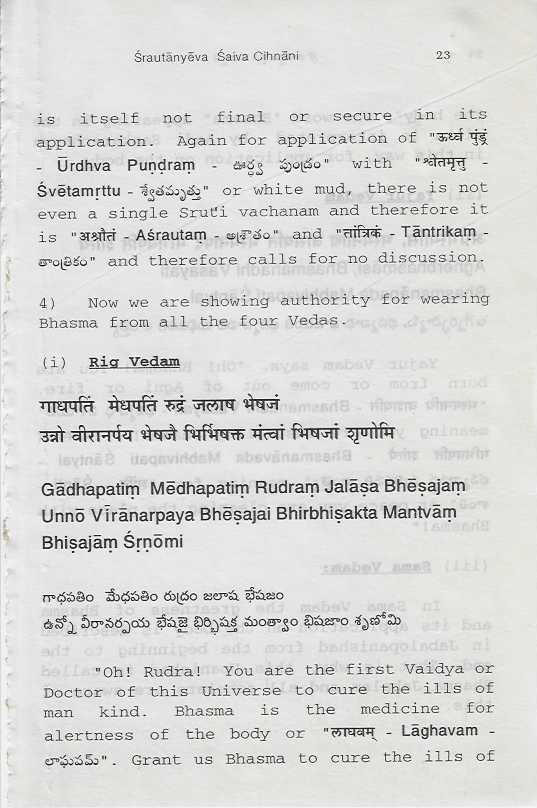 Śrautānyēva Śaiva Cihnāni 23
is itself not final or secure in its
application. Again for application of "ऊर्ध्व पुंड्रं
- Ūrdhva Puṇḍraṃ - ఊర్ధ్వ పుండ్రం" with "श्वेतमृत्तु -
Śvētamṛttu - శ్వేతమృత్తు" or white mud, there is not
even a single Sruti vachanam and therefore it
is "अश्रौतं - Aśrautaṃ - అశ్రౌతం" and "तांत्रिकं - Tāntrikaṃ -
తాంత్రికం" and therefore calls for no discussion.
4) Now we are showing authority for wearing
Bhasma from all the four Vedas.
(i) Rig Vedam
गाधपतिं मेधपतिं रुद्रं जलाष भेषजं
उन्नो वीरानर्पय भेषजै भिर्भिषक्त मंत्वां भिषजां शृणोमि
Gādhapatiṃ Mēdhapatiṃ Rudraṃ Jalāṣa Bhēṣajaṃ
Unnō Vīrānarpaya Bhēṣajai Bhirbhiṣakta Mantvāṃ
Bhiṣajāṃ Śṛṇōmi
గాధపతిం మేధపతిం రుద్రం జలాష భేషజం
ఉన్నో వీరానర్పయ భేషజై భిర్భిషక్త మంత్వాం భిషజాం శృణోమి
"Oh! Rudra! You are the first Vaidya or
Doctor of this Universe to cure the ills of
man kind. Bhasma is the medicine for
alertness of the body or "लाघवम् - Lāghavam -
లాఘవమ్". Grant us Bhasma to cure the ills of